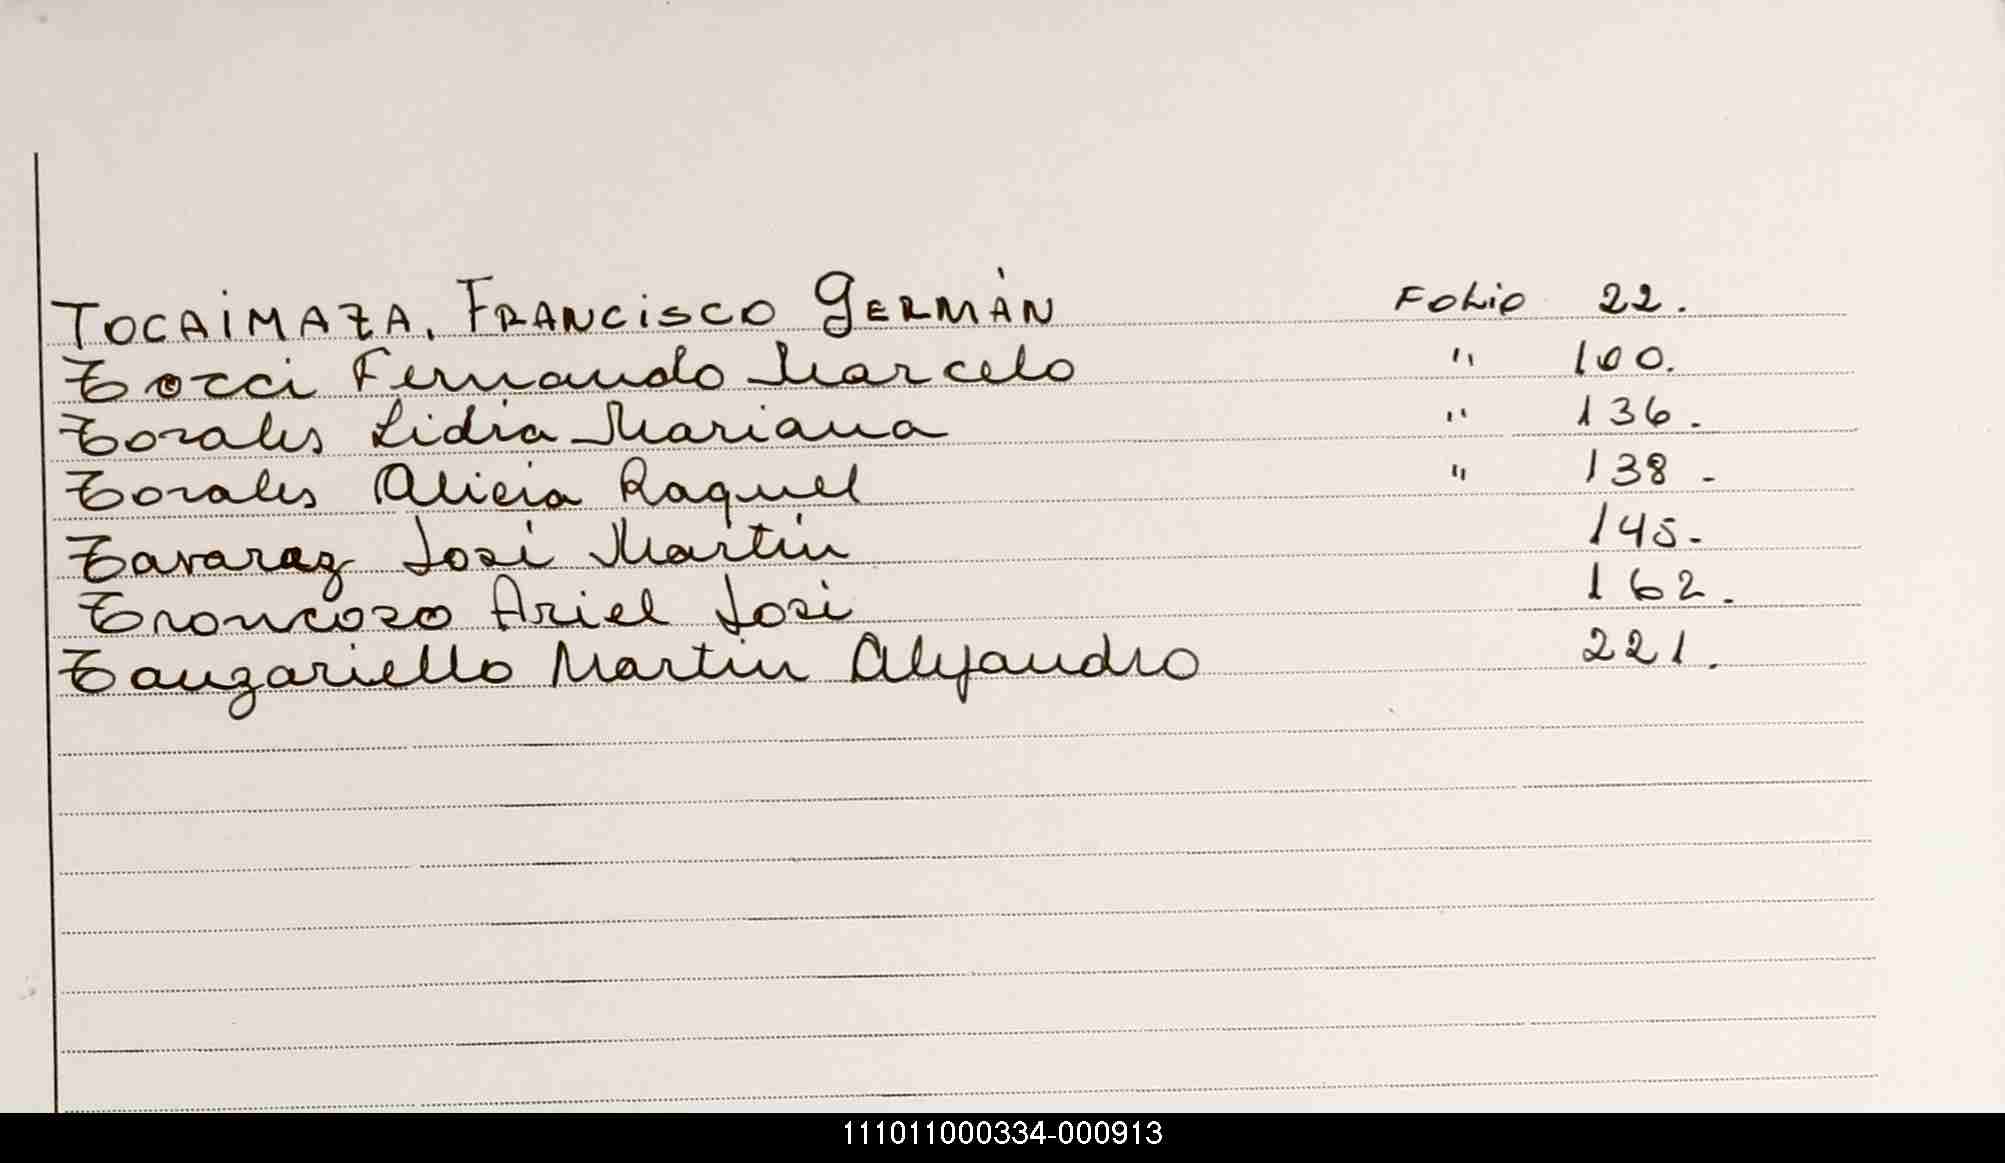 TOCAIMAZA, FRANCISCO GERMÁN Folio 22.
Tozzi Fernando Marcelo " 100.
Torales Lidia Mariana " 136.
Torales Alicia Raquel " 138 -
Tavaraz José Martin 145.-
Troncozo Ariel José 162.
Tanzariello Martin Alejandro 221.
111011000334-000913